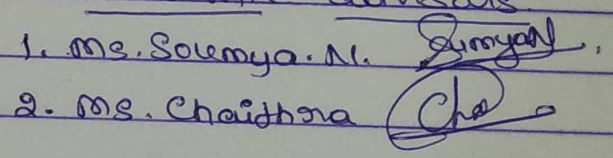 1. Ms. Soumya. N. SoumyaN
2. Ms. Chaithra Cha